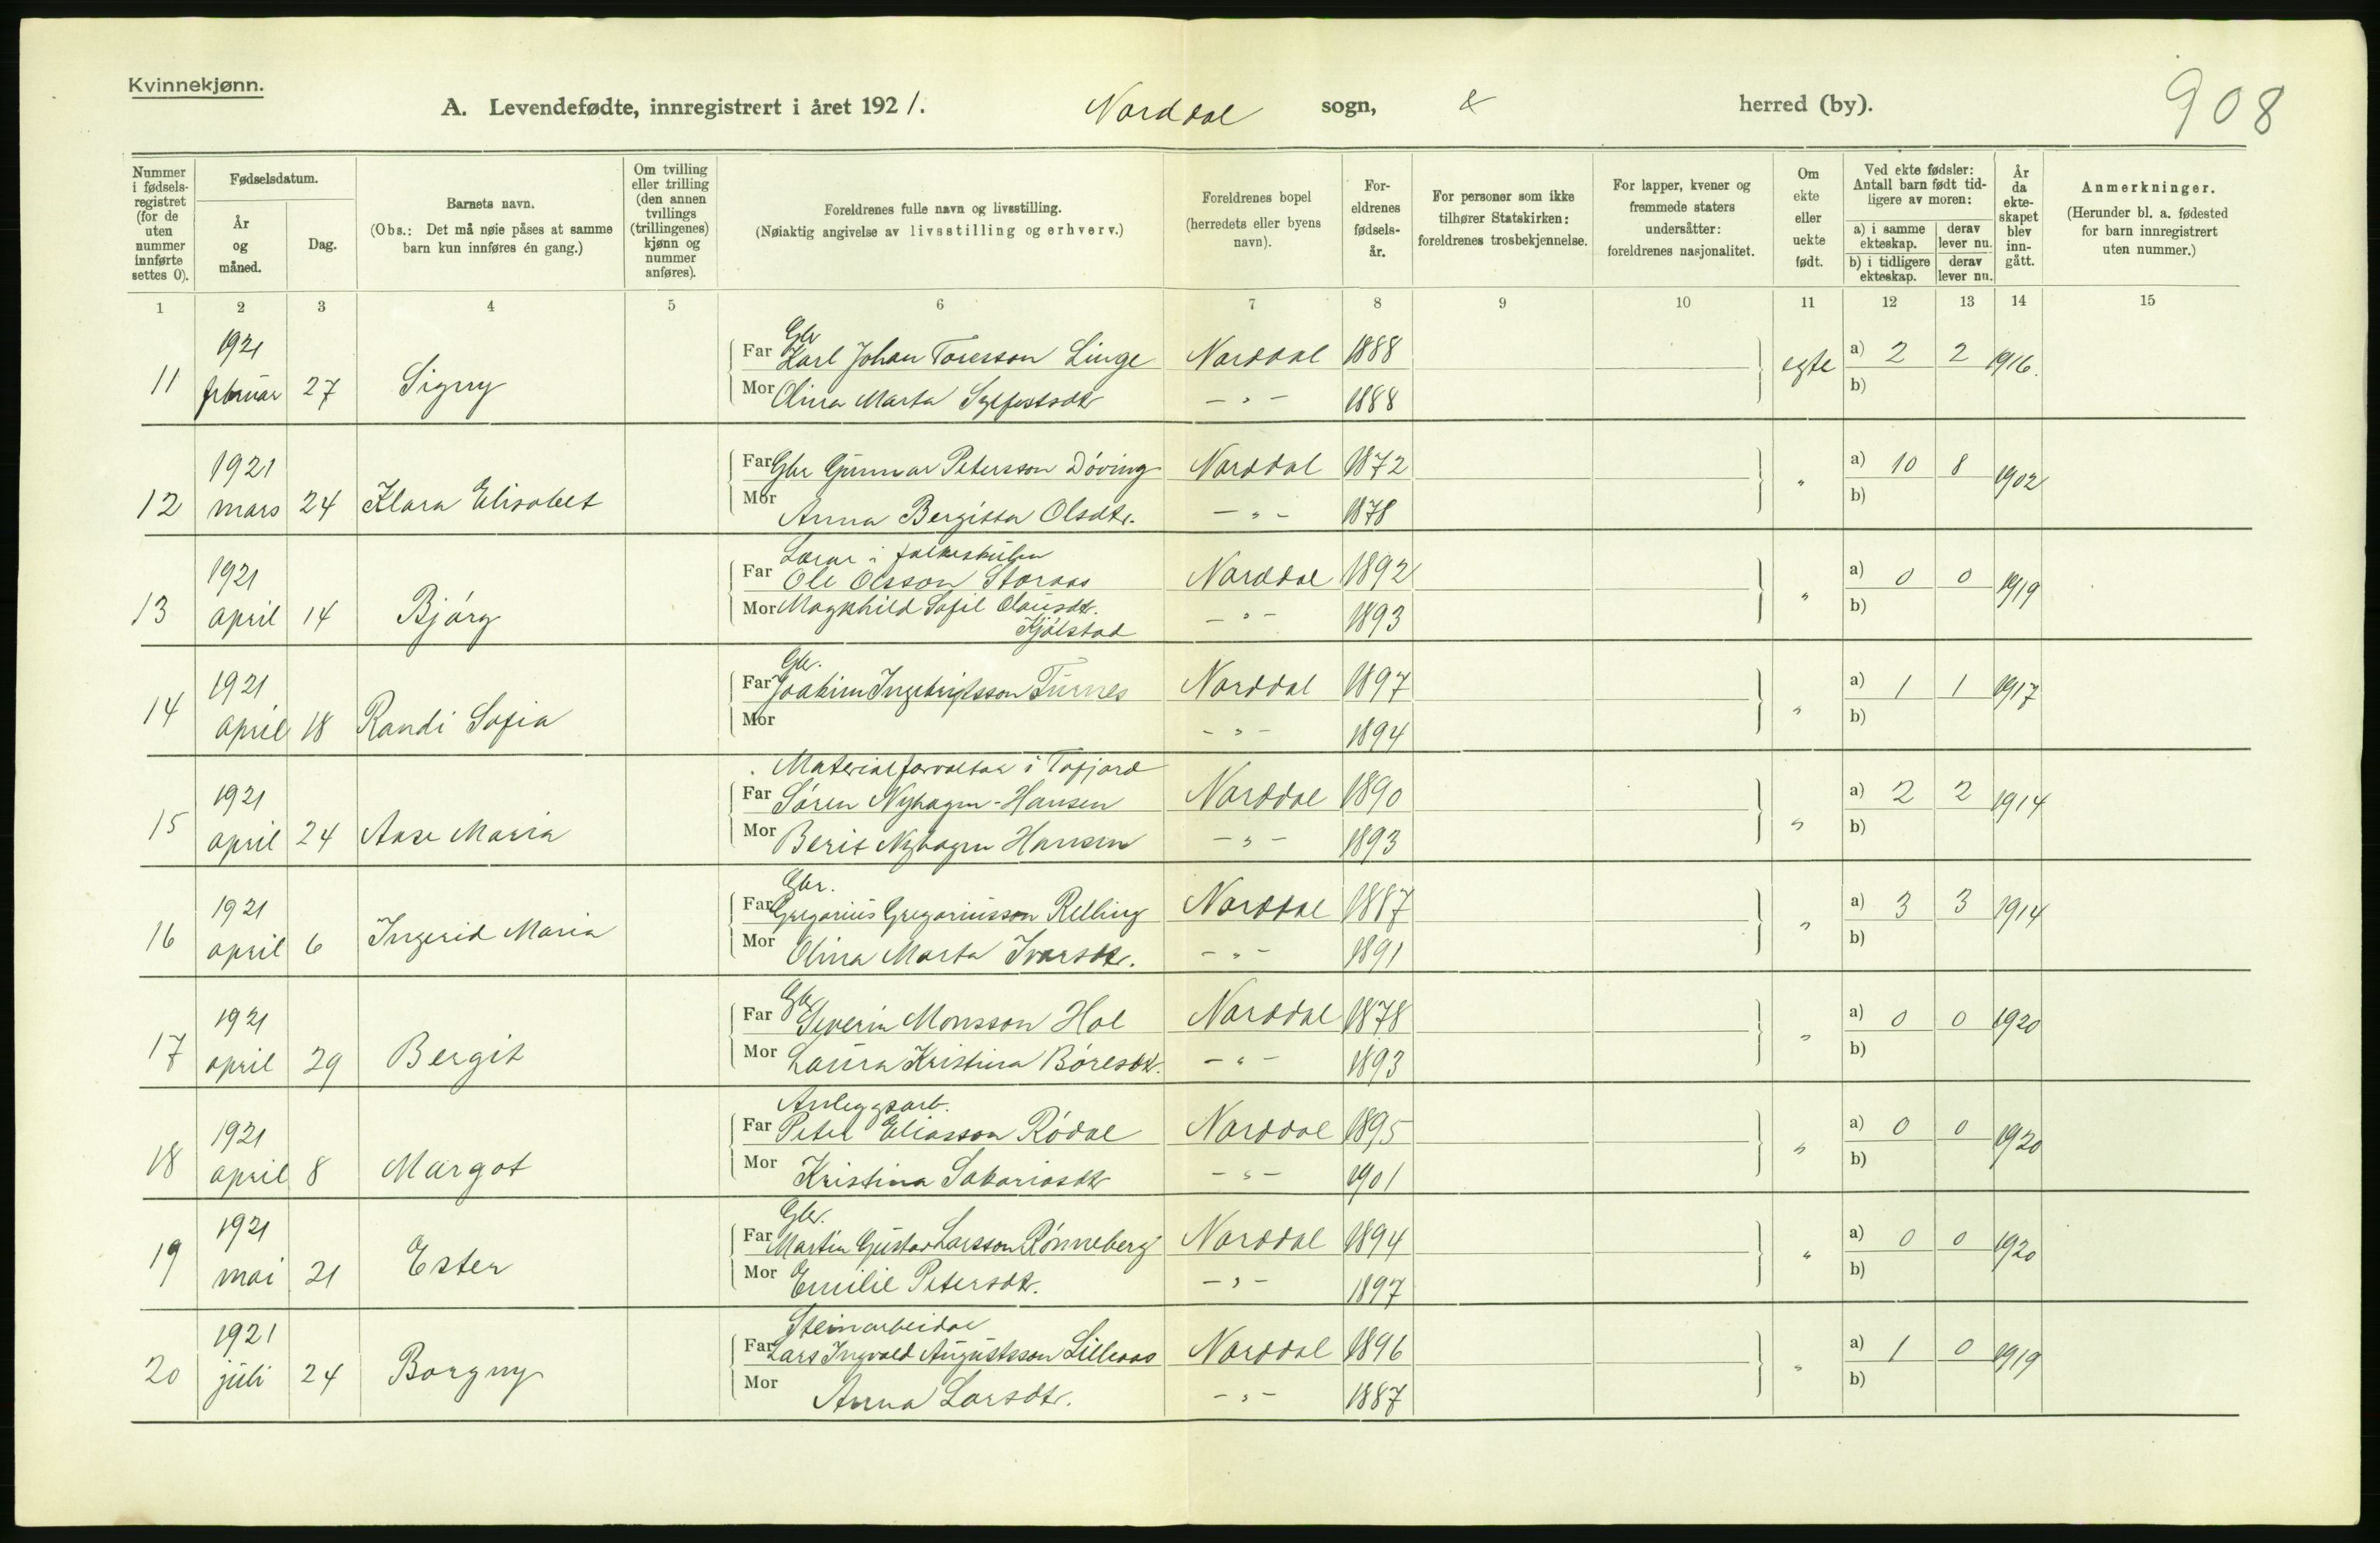 Kvinnekjønn.
A. Levendefødte, innregistrert i året 1921. Norddal sogn, & herred (by). 908
Nummer i fødsels-registret (for de uten nummer innførte settes 0).
Fødselsdatum.
År og måned.
Dag.
Barnets navn.
(Obs.: Det må nøie påses at samme barn kun innføres én gang.)
Om tvilling eller trilling (den annen tvillings (trillingenes) kjønn og nummer anføres).
Foreldrenes fulle navn og livsstilling.
(Nøiaktig angivelse av livsstilling og erhverv.)
Foreldrenes bopel (herredets eller byens navn).
For-eldrenes fødsels-år.
For personer som ikke tilhører Statskirken: foreldrenes trosbekjennelse.
For lapper, kvener og fremmede staters undersåtter: foreldrenes nasjonalitet.
Om ekte eller uekte født.
Ved ekte fødsler: Antall barn født tid-ligere av moren:
a) i samme ekteskap. derav lever nu.
b) i tidligere ekteskap. derav lever nu.
År da ekte-skapet blev inn-gått.
Anmerkninger.
(Herunder bl. a. fødested for barn innregistrert uten nummer.)
1 2 3 4 5 6 7 8 9 10 11 12 13 14 15
Gbr
1921 Far Karl Johan Toresson Linge Norddal 1888 a) 2 2 1916.
11 februar 27 Signy Mor Olina Marta Sylfestsdtr - " - 1888 egte b)
1921 Far Gbr Gunnar Petersson Döving Norddal 1872 a) 10 8 1902
12 mars 24 Klara Elisabet Mor Anna Bergitta Olsdtr. - " - 1878 " b)
Lærar i folkeskulen
1921 Far Ole Olsson Storaas Norddal 1892 a) 0 0 1919
13 april 14 Bjórg Mor Magnhild Sofie Olausdtr. - " - 1893 " b)
Kjólstad
Gbr.
1921 Far Joakim Ingebrigtsson Furnes Norddal 1897 a) 1 1 1917
14 april 18 Randi Sofia Mor - " - 1894 " b)
Materialforvaltar i Tafjord
1921 Far Sören Nyhagen-Hansen Norddal 1890 a) 2 2 1914
15 april 24 Aase Maria Mor Berit Nyhagen Hansen - " - 1893 " b)
Gbr.
1921 Far Gregarius Gregariusson Relling Norddal 1887 a) 3 3 1914
16 april 6 Ingerid Maria Mor Olina Marta Ivarsdtr. - " - 1891 " b)
Gbr
1921 Far Severin Monsson Hol Norddal 1878 a) 0 0 1920
17 april 29 Bergit Mor Laura Kristina Bóresdtr. - " - 1893 " b)
Anleggsarb.
1921 Far Peter Eliasson Ródal Norddal 1895 a) 0 0 1920
18 april 8 Margot Mor Kristina Sakariasdtr - " - 1901 " b)
Gbr.
1921 Far Martin Gustav Larsson Rónneberg Norddal 1894 a) 0 0 1920
19 mai 21 Ester Mor Emilie Petersdtr. - " - 1897 " b)
Steinarbeidar
1921 Far Lars Ingvald Augustsson Lilleaas Norddal 1896 a) 1 0 1919
20 juli 24 Borgny Mor Anna Larsdtr. - " - 1887 " b)